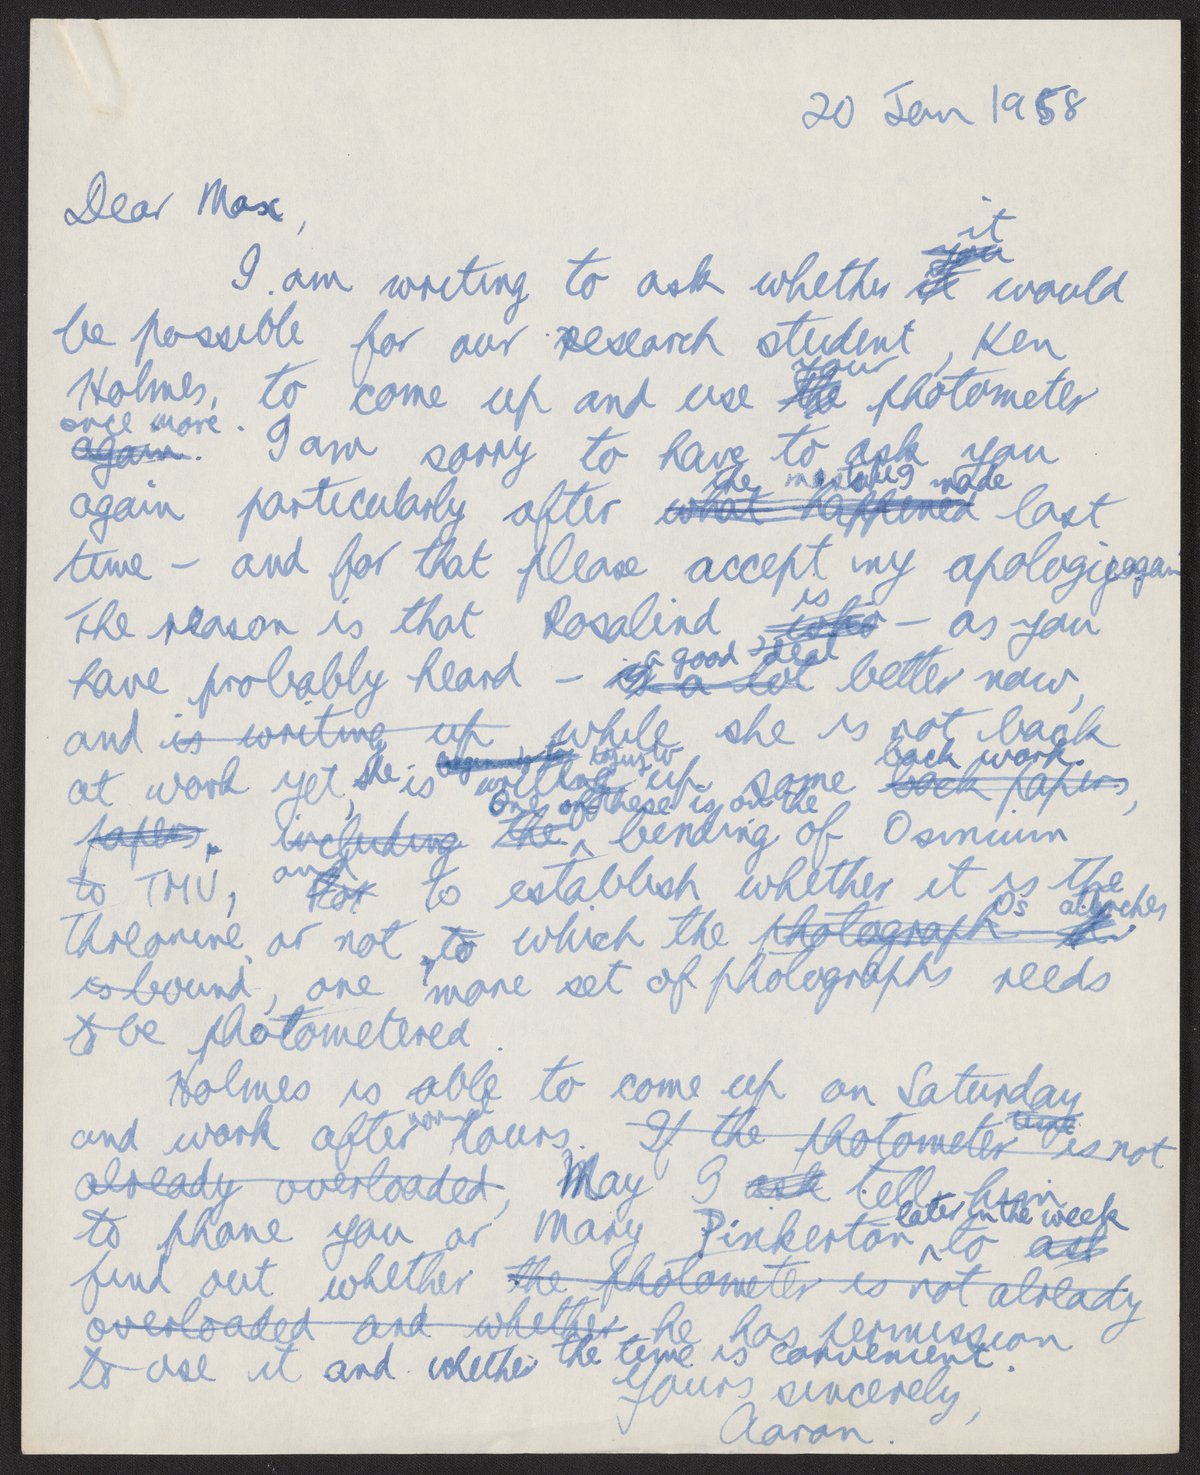 20 Jan 1958
Dear Max,
it
you
I am writing to ask whether it would
be possible for our research student, Ken
your
Holmes, to come up and use the photometer
once more.
again. I am sorry to have to ask you
the mistakes made
again particularly after what happened last
time – and for that please accept my apologies again
is
The reason is that Rosalind – as you
a good deal
have probably heard – is a lot better now,
and is writing up while she is not back
back work.
at work yet, she is writing up some back papers,
One of these is on the
papers, including the bending of Osmium
and
to TMV, to establish whether it is the
Os attaches
threonine, or not, to which the photograph
is bound, one more set of photographs needs
to be photometered.
Holmes is able to come up on Saturday
normal time
and work after hours. If the photometer is not
already overloaded, May I ask tell him
later in the week
to phone you or Mary Pinkerton to ask
find out whether the photometer is not already
overloaded and whether he has permission
to use it and whether the time is convenient.
Yours sincerely,
Aaron.